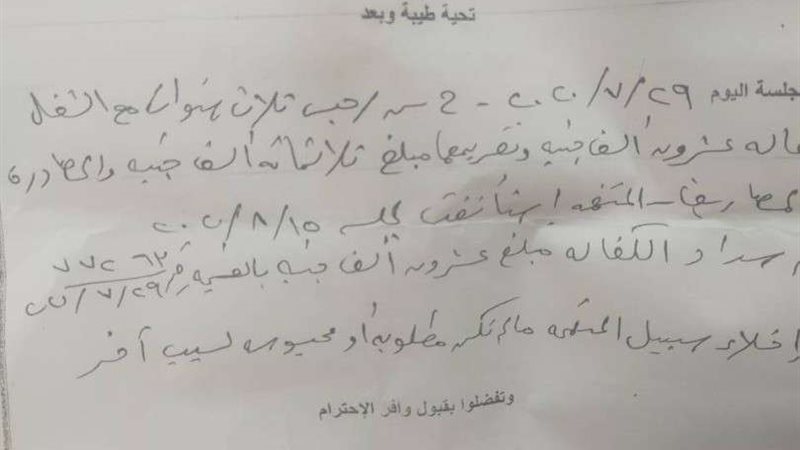 تحية طيبة وبعد
جلسة اليوم ٢٩/٧/٢٠٢٠ - حبس ثلاث سنوات مع الشغل
عشرون ألف جنيه وتغريمها مبلغ ثلاثمائة ألف جنيه والمصادرة
المتهمه استأنفت جلسه ١٥/٨/٢٠٢٠
سداد الكفاله مبلغ عشرون ألف جنيه بالقسيمة رقم
٢٩/٧/٢٠٢٠
واخلاء سبيل المتهمه مالم تكن مطلوبه أو محبوسه لسبب آخر
وتفضلوا بقبول وافر الإحترام